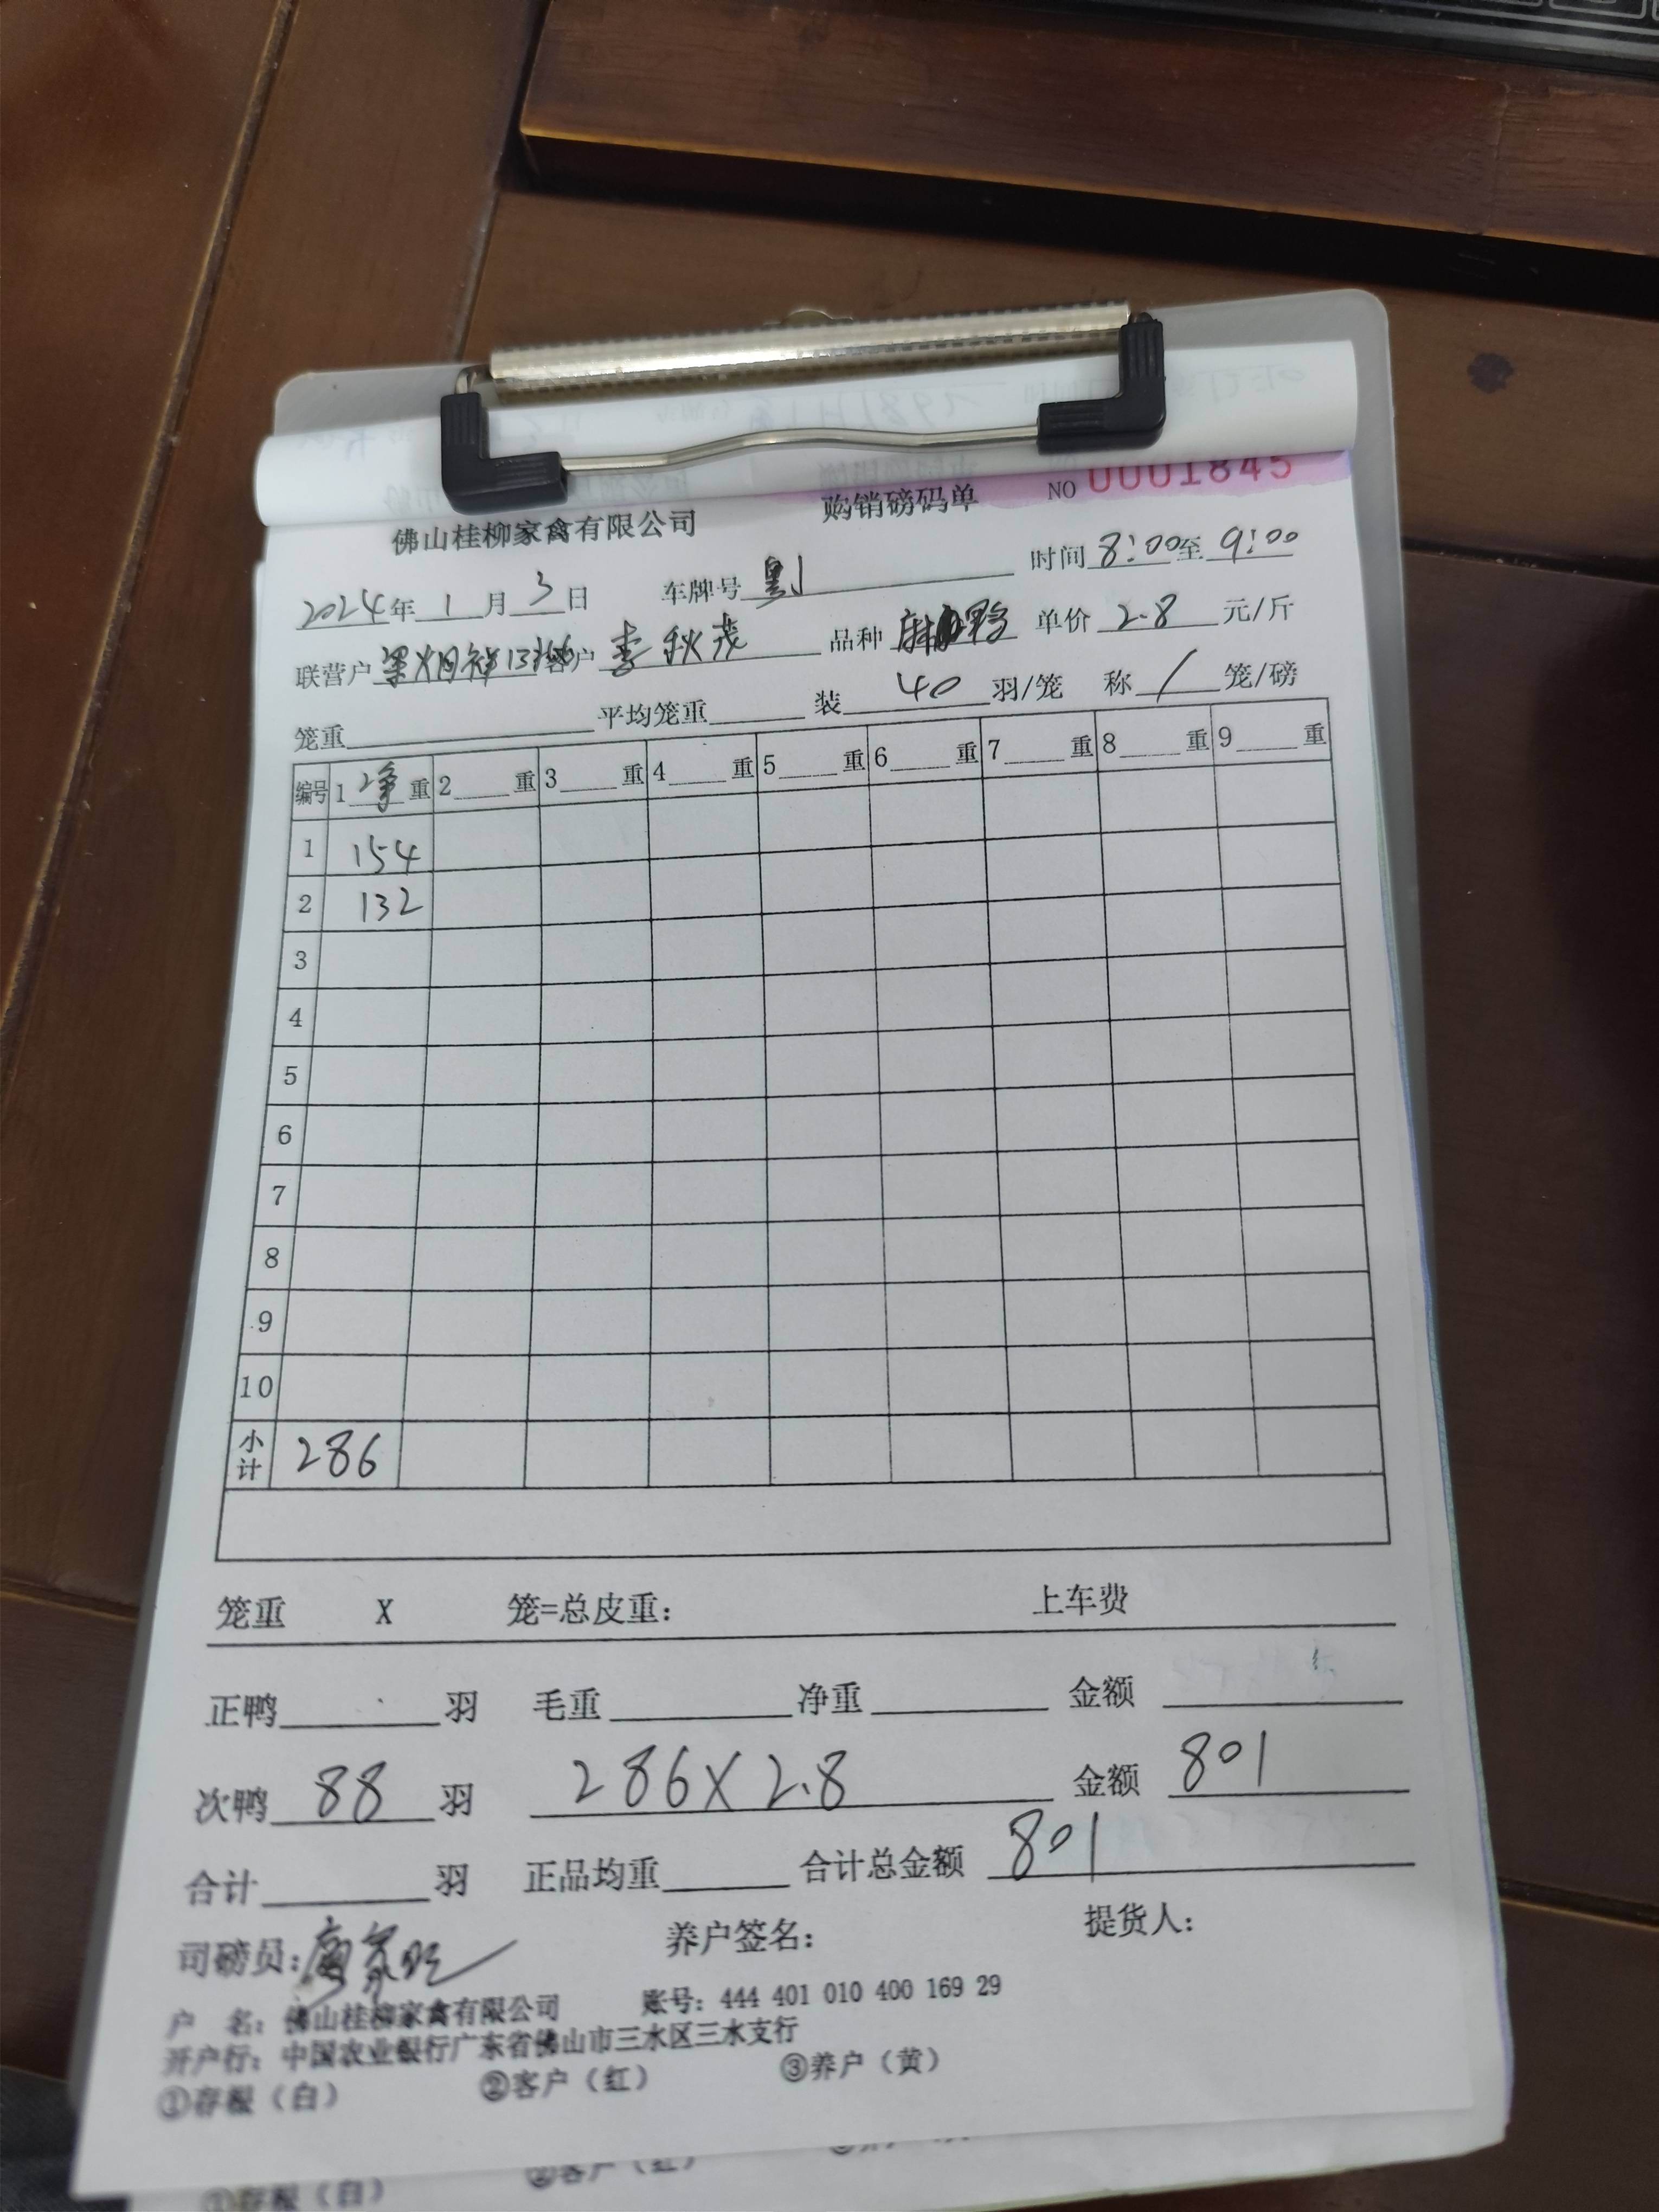 购销磅码单 NO 0001845
佛山桂柳家禽有限公司
2024年1月3日 车牌号 时间8:00至9:00
联营户 客户李秋茂 品种 单价2.8元/斤
笼重 平均笼重 装40羽/笼 称/笼/磅
编号 1净重 2重 3重 4重 5重 6重 7重 8重 9重
1 154
2 132
3
4
5
6
7
8
9
10
小计 286
笼重 X 笼=总皮重: 上车费
正鸭 羽 毛重 净重 金额
次鸭88羽 286X2.8 金额801
合计 羽 正品均重 合计总金额801
司磅员: 养户签名: 提货人:
户 名: 佛山桂柳家禽有限公司 账号: 444 401 010 400 169 29
开户行: 中国农业银行广东省佛山市三水区三水支行
①存根(白) ②客户(红) ③养户(黄)
②客户(红)
①存根(白)